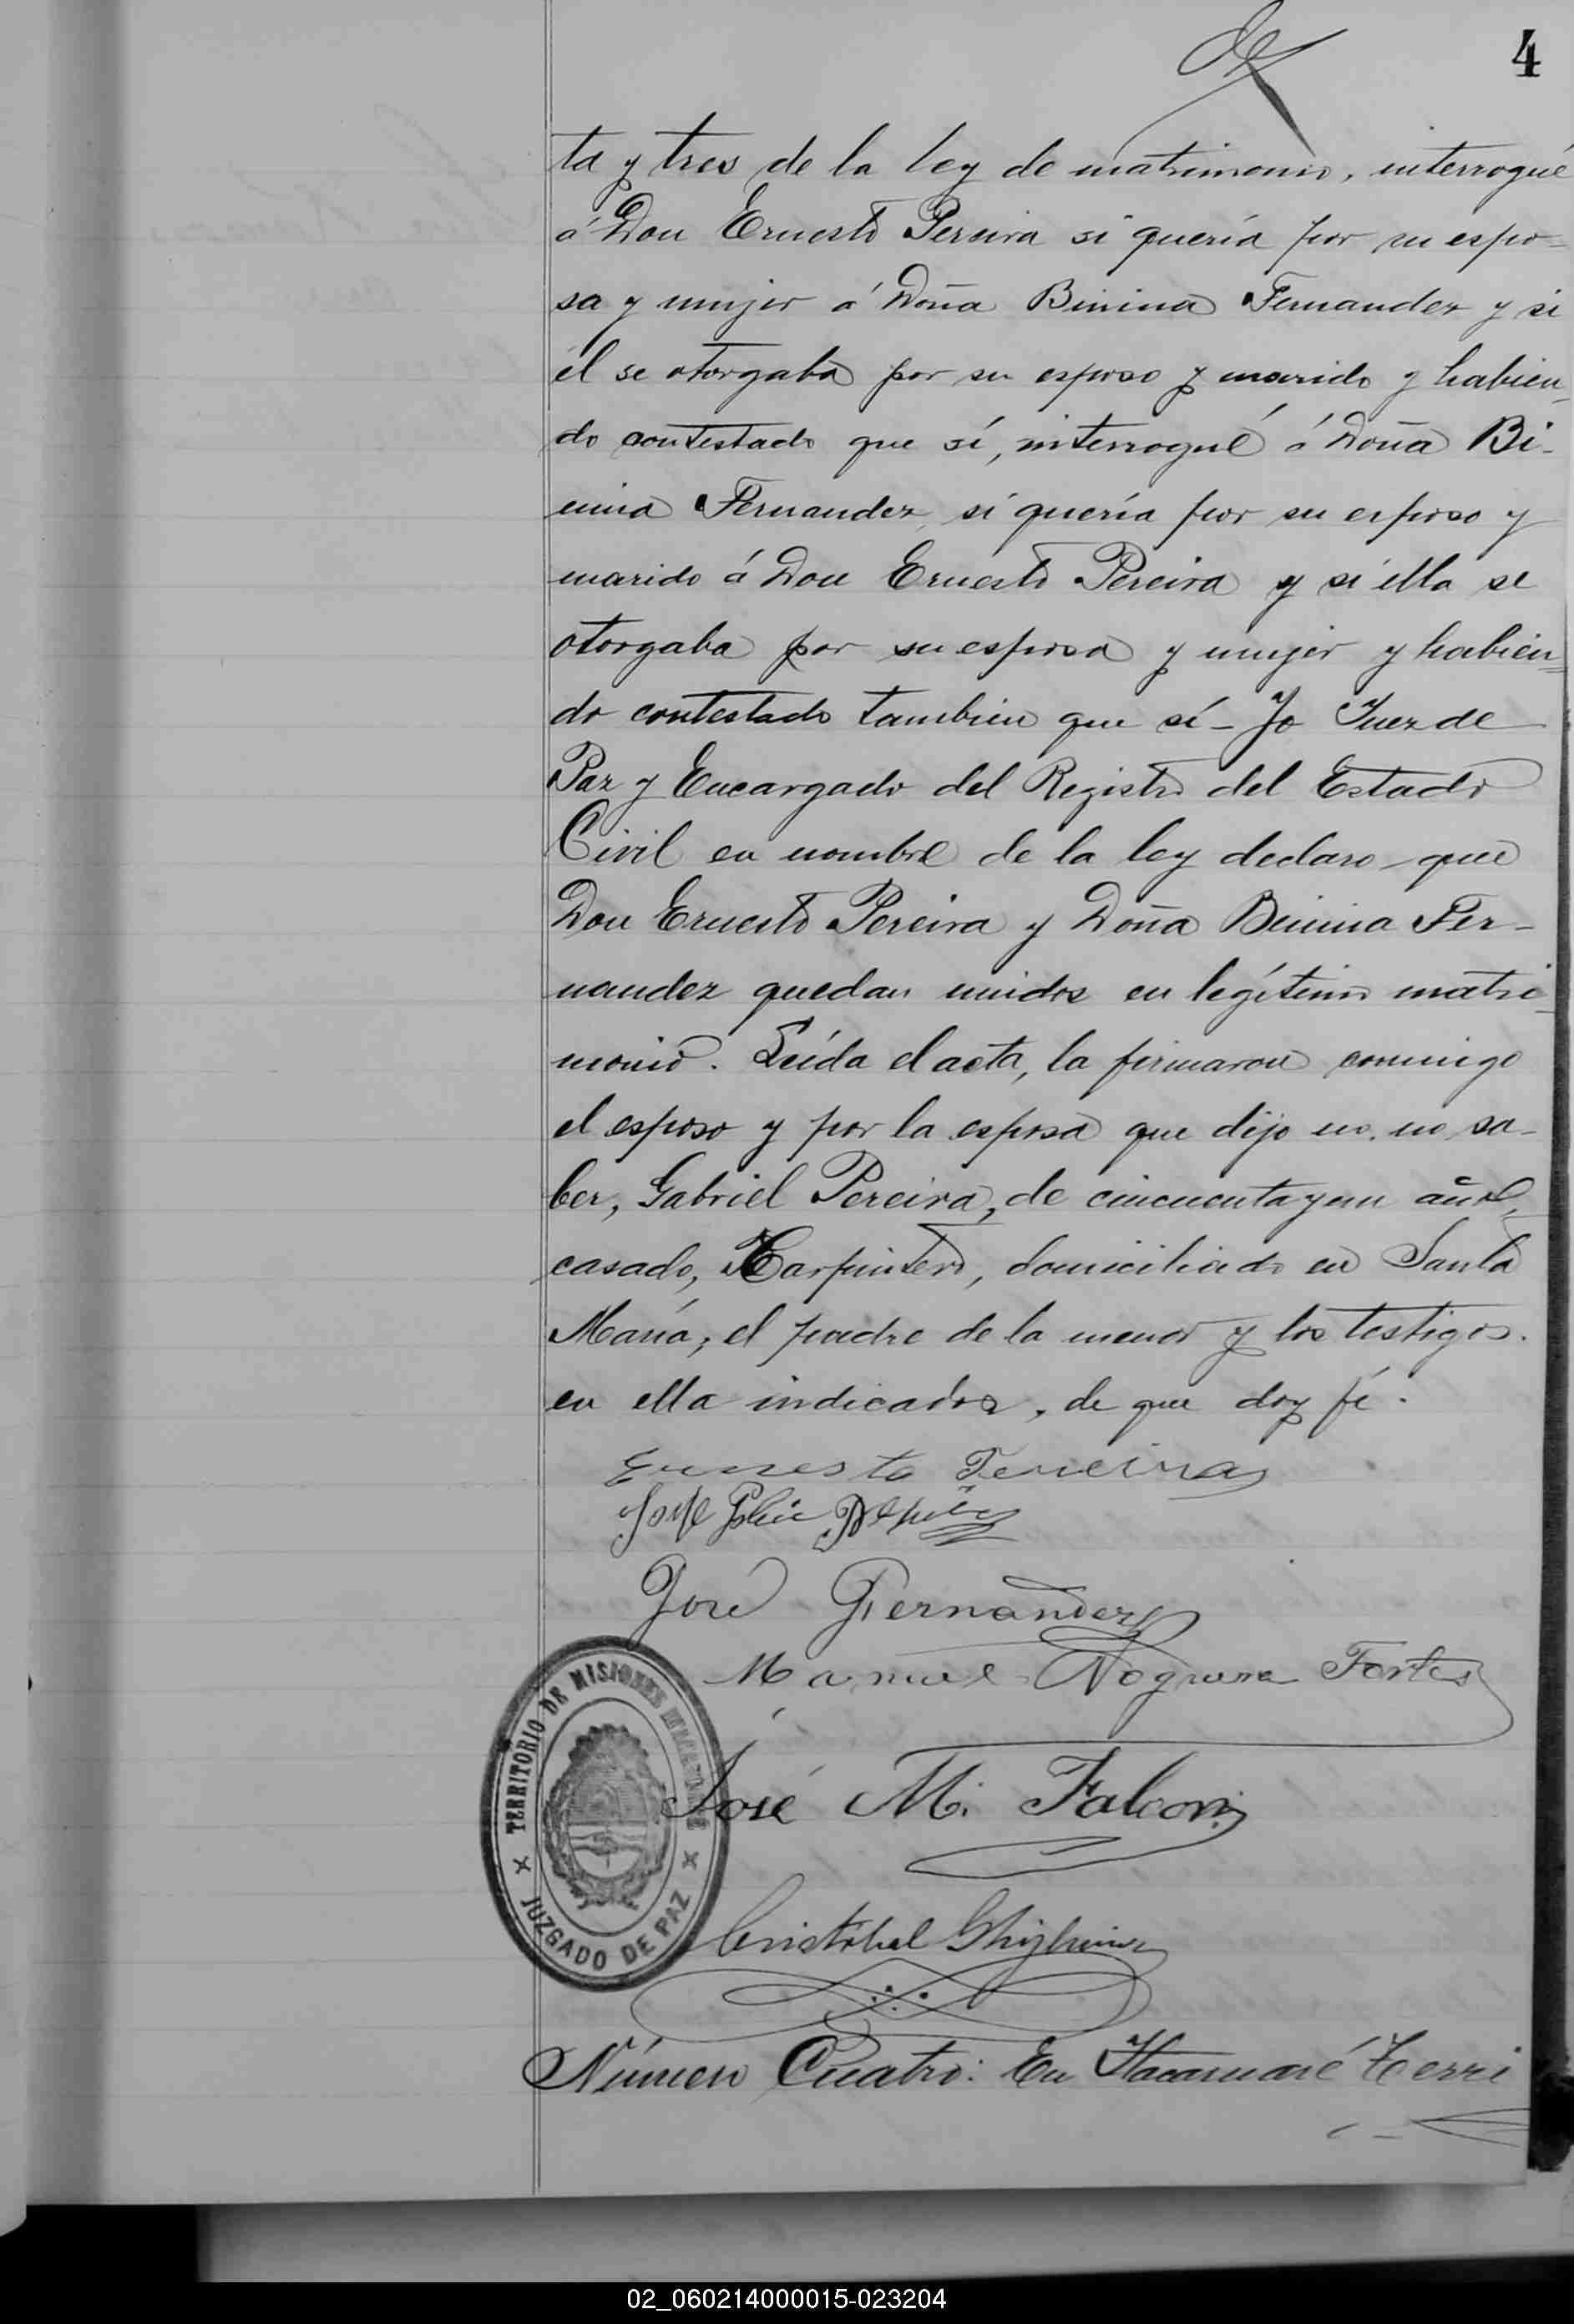 4
ta y tres de la ley de matrimonio, interrogué
á Don Ernesto Pereira si quería por su espo=
sa y mujer á Doña Binina Fernandez y si
él se otorgaba por su esposo y marido y habien=
do contestado que sí, interrogué á Doña Bi-
nina Fernandez, si quería por su esposo y
marido á Don Ernesto Pereira y si ella se
otorgaba por su esposa y mujer y habien=
do contestado tambien que sí - Yo Juez de
Paz y Encargado del Registro del Estado
Civil en nombre de la ley declaro que
Don Ernesto Pereira y Doña Binina Fer-
nandez quedan unidos en legítimo matri=
monio. Leída el acta, la firmaron conmigo
el esposo y por la esposa que dijo no, no sa-
ber, Gabriel Pereira, de cincuenta y un años,
casado, Carpintero, domiciliado en Santa
María; el padre de la menor y los testigos
en ella indicados, de que doy fé.
Ernesto Pereira
José
José Fernandez
Manuel Noguera Fortes
José M. Falcon
TERRITORIO DE MISIONES
JUZGADO DE PAZ
Cristobal
Número Cuatro: En Itacaruaré Terri
02_060214000015-023204